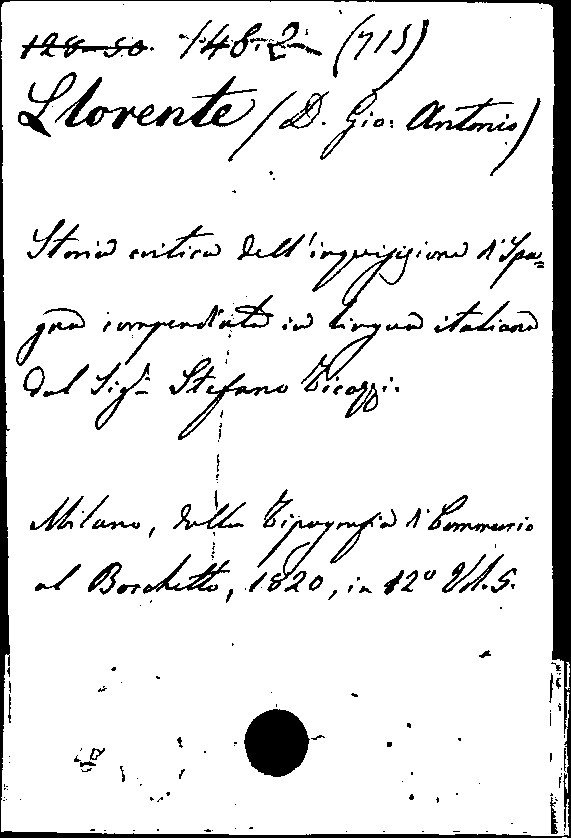 128-50. 148-2 (715)
Llorente (D. Gio: Antonio)
Storia critica dell'inquisizione di Spa=
gna compendiata in lingua italiana
dal Sigr. Stefano Ticozzi.
Milano, dalla Tipografia di Commercio
al Boschetto, 1820, in 12º Vol. 5.